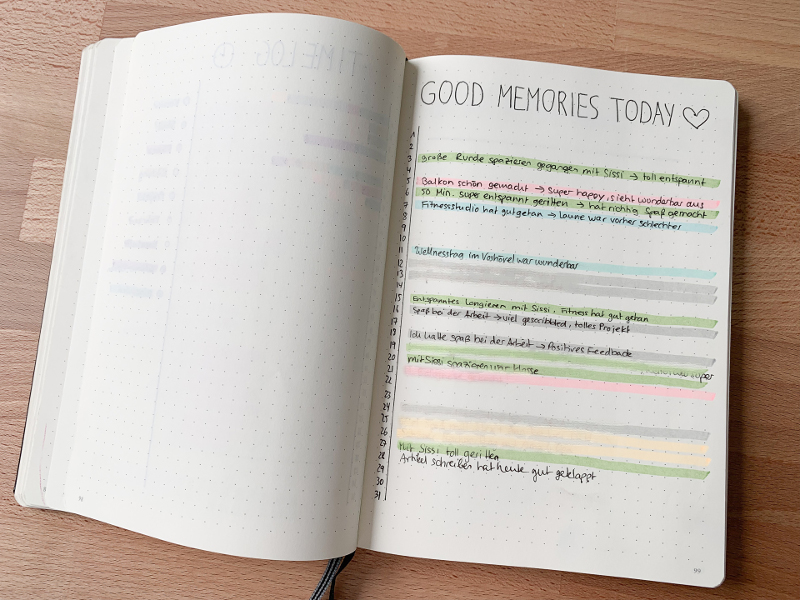 GOOD MEMORIES TODAY
1
2
3 große Runde spazieren gegangen mit Sissi → toll entspannt
4
5 Balkon schön gemacht → super happy, sieht wunderbar aus
6 50 Min. super entspannt geritten → hat richtig Spaß gemacht
7 Fitnessstudio hat gut getan → Laune war vorher schlechter
8
9
10
11 Wellnesstag im Voshövel war wunderbar
12
13
14
15 Entspanntes Longieren mit Sissi, Fitness hat gut getan
16 Spaß bei der Arbeit → viel gescribbled, tolles Projekt
17
18 Ich hatte spaß bei der Arbeit → Positives Feedback
19
20 mit Sissi spazieren war klasse super
21
22
23
24
25
26
27 Mit Sissi toll geritten
28 Artikel schreiben hat heute gut geklappt
29
30
31
TIME LOG